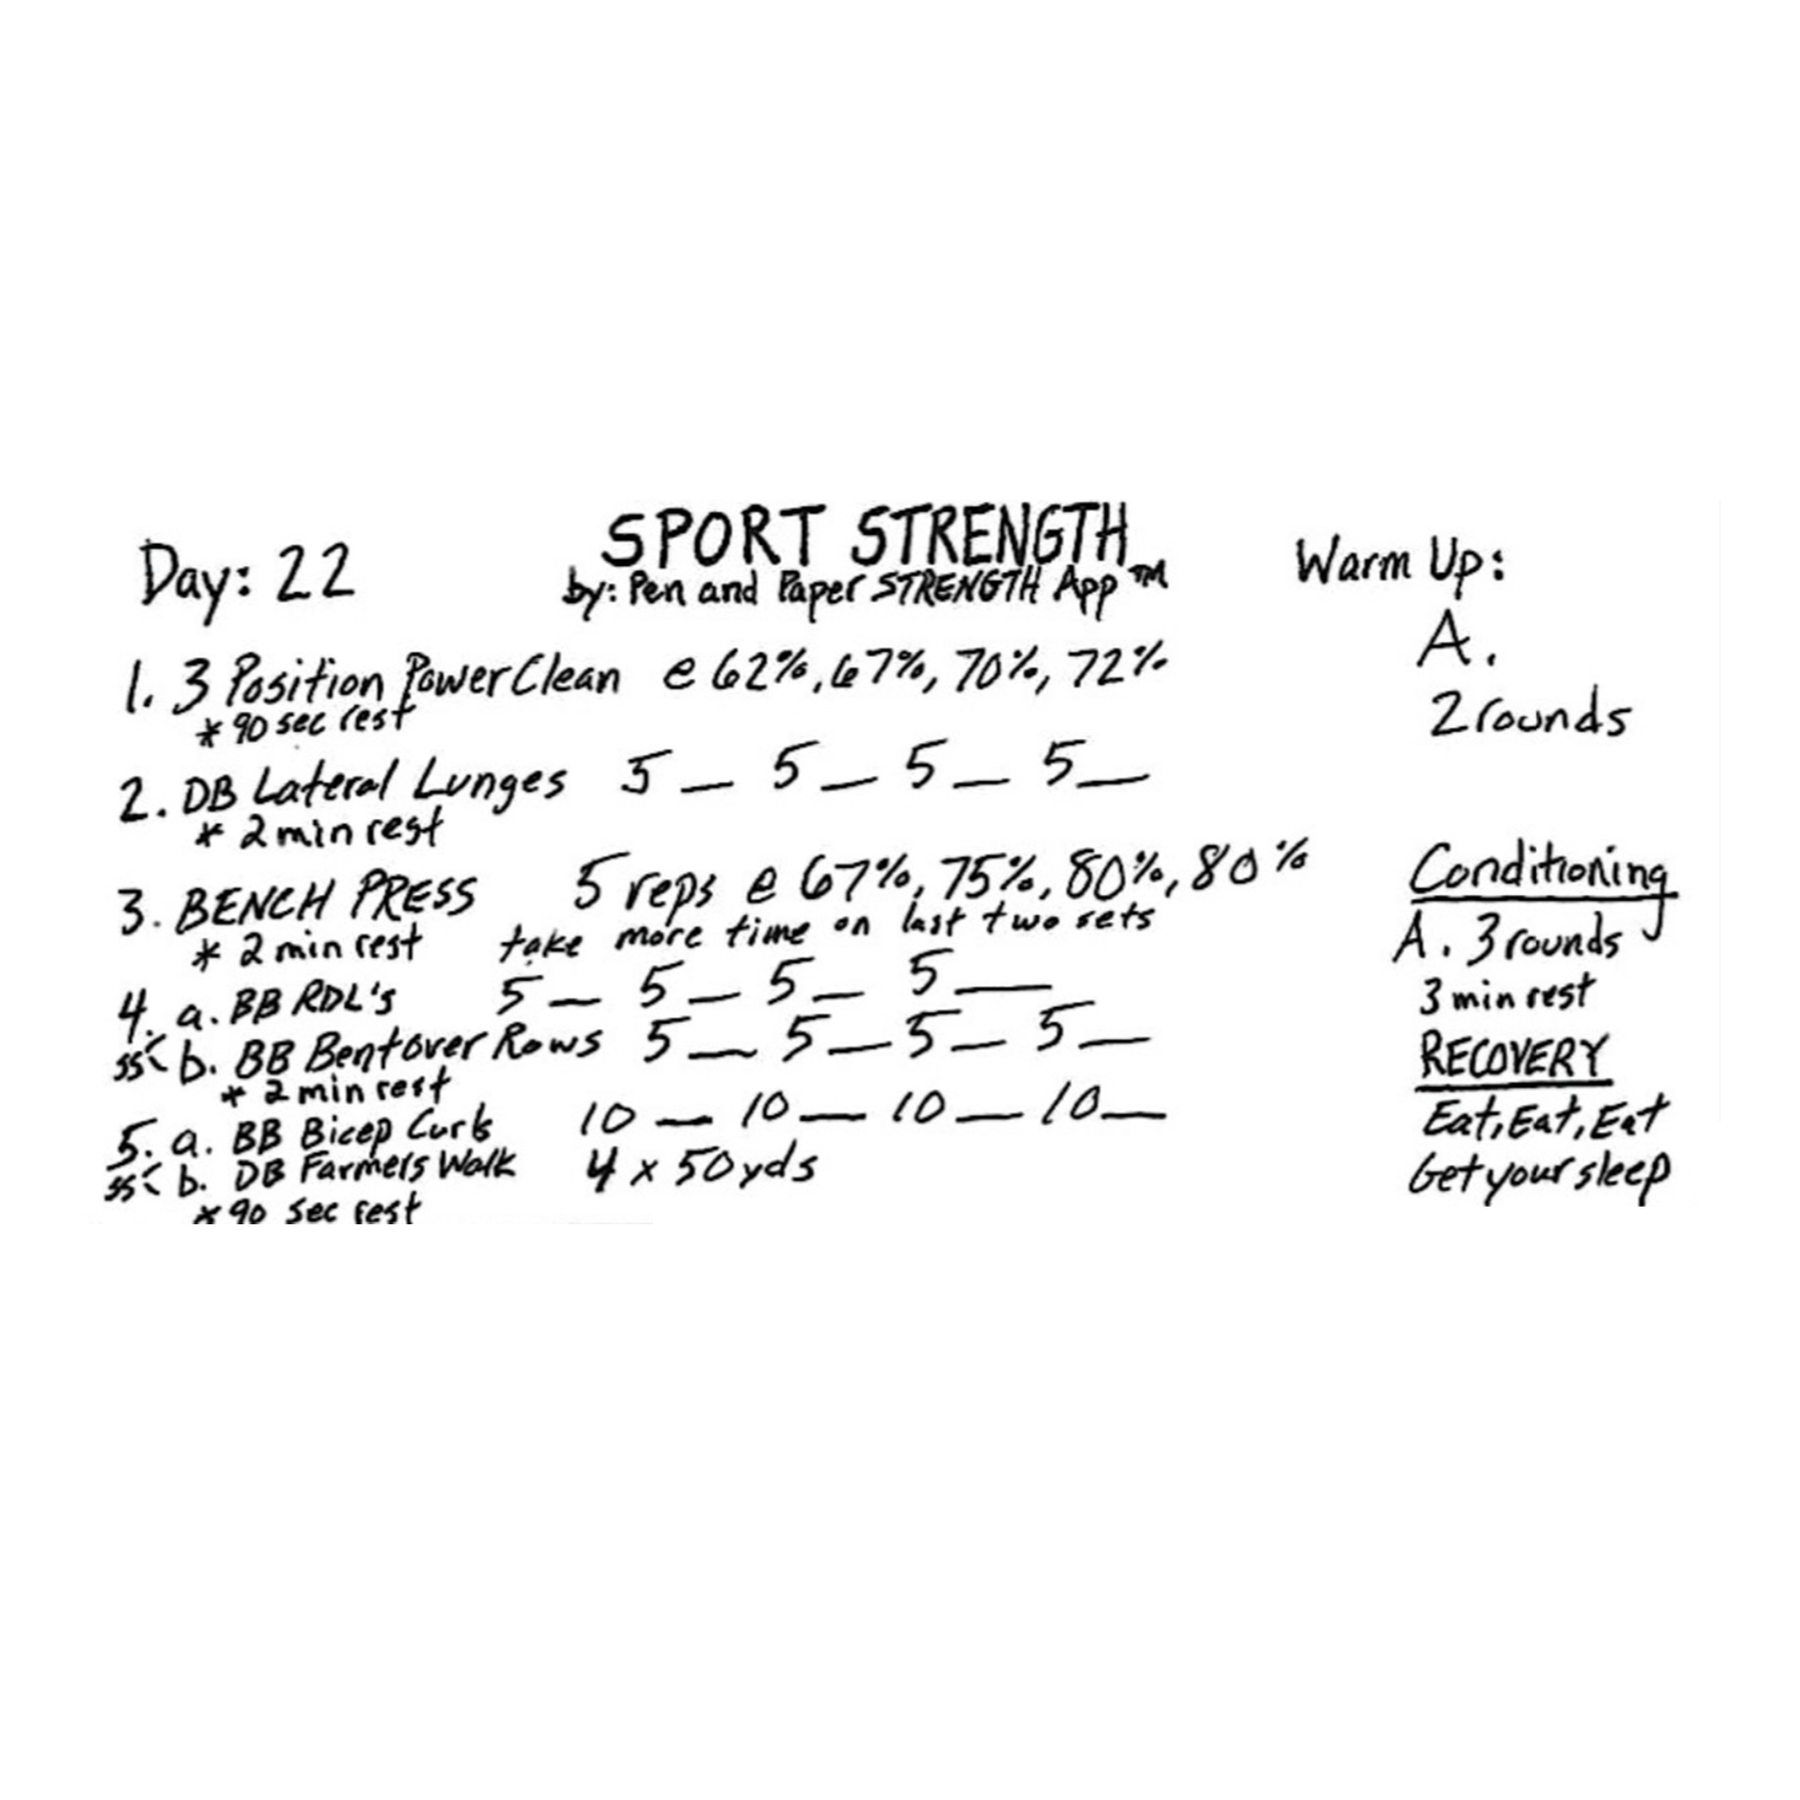 Day: 22
SPORT STRENGTH
by: Pen and Paper STRENGTH App™
1. 3 Position Power Clean @ 62%, 67%, 70%, 72%
* 90 sec rest
2. DB Lateral Lunges 5 _ 5 _ 5 _ 5 _
* 2 min rest
3. BENCH PRESS 5 reps @ 67%, 75%, 80%, 80%
* 2 min rest take more time on last two sets
4. a. BB RDL's 5 _ 5 _ 5 _ 5 _
ss< b. BB Bentover Rows 5 _ 5 _ 5 _ 5 _
* 2 min rest
5. a. BB Bicep Curls 10 _ 10 _ 10 _ 10 _
ss< b. DB Farmers Walk 4 x 50yds
* 90 sec rest
Warm Up:
A.
2 rounds
Conditioning
A. 3 rounds
3 min rest
RECOVERY
Eat, Eat, Eat
Get your sleep